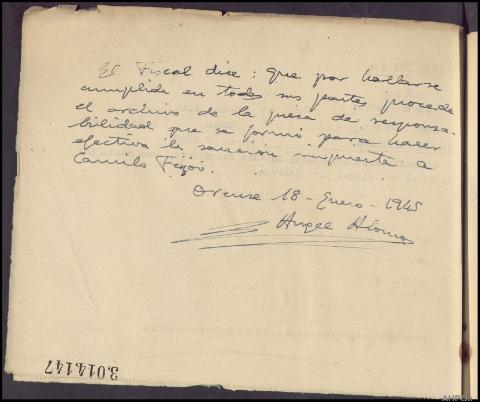 El Fiscal dice: que por hallarse
cumplida en todas sus partes procede
el archivo de la pieza de responsa-
bilidad que se formó para hacer
efectiva la sanción impuesta a
Camilo Feijóo.
Orense 18 - Enero - 1945
Angel Alonso
3.0144147